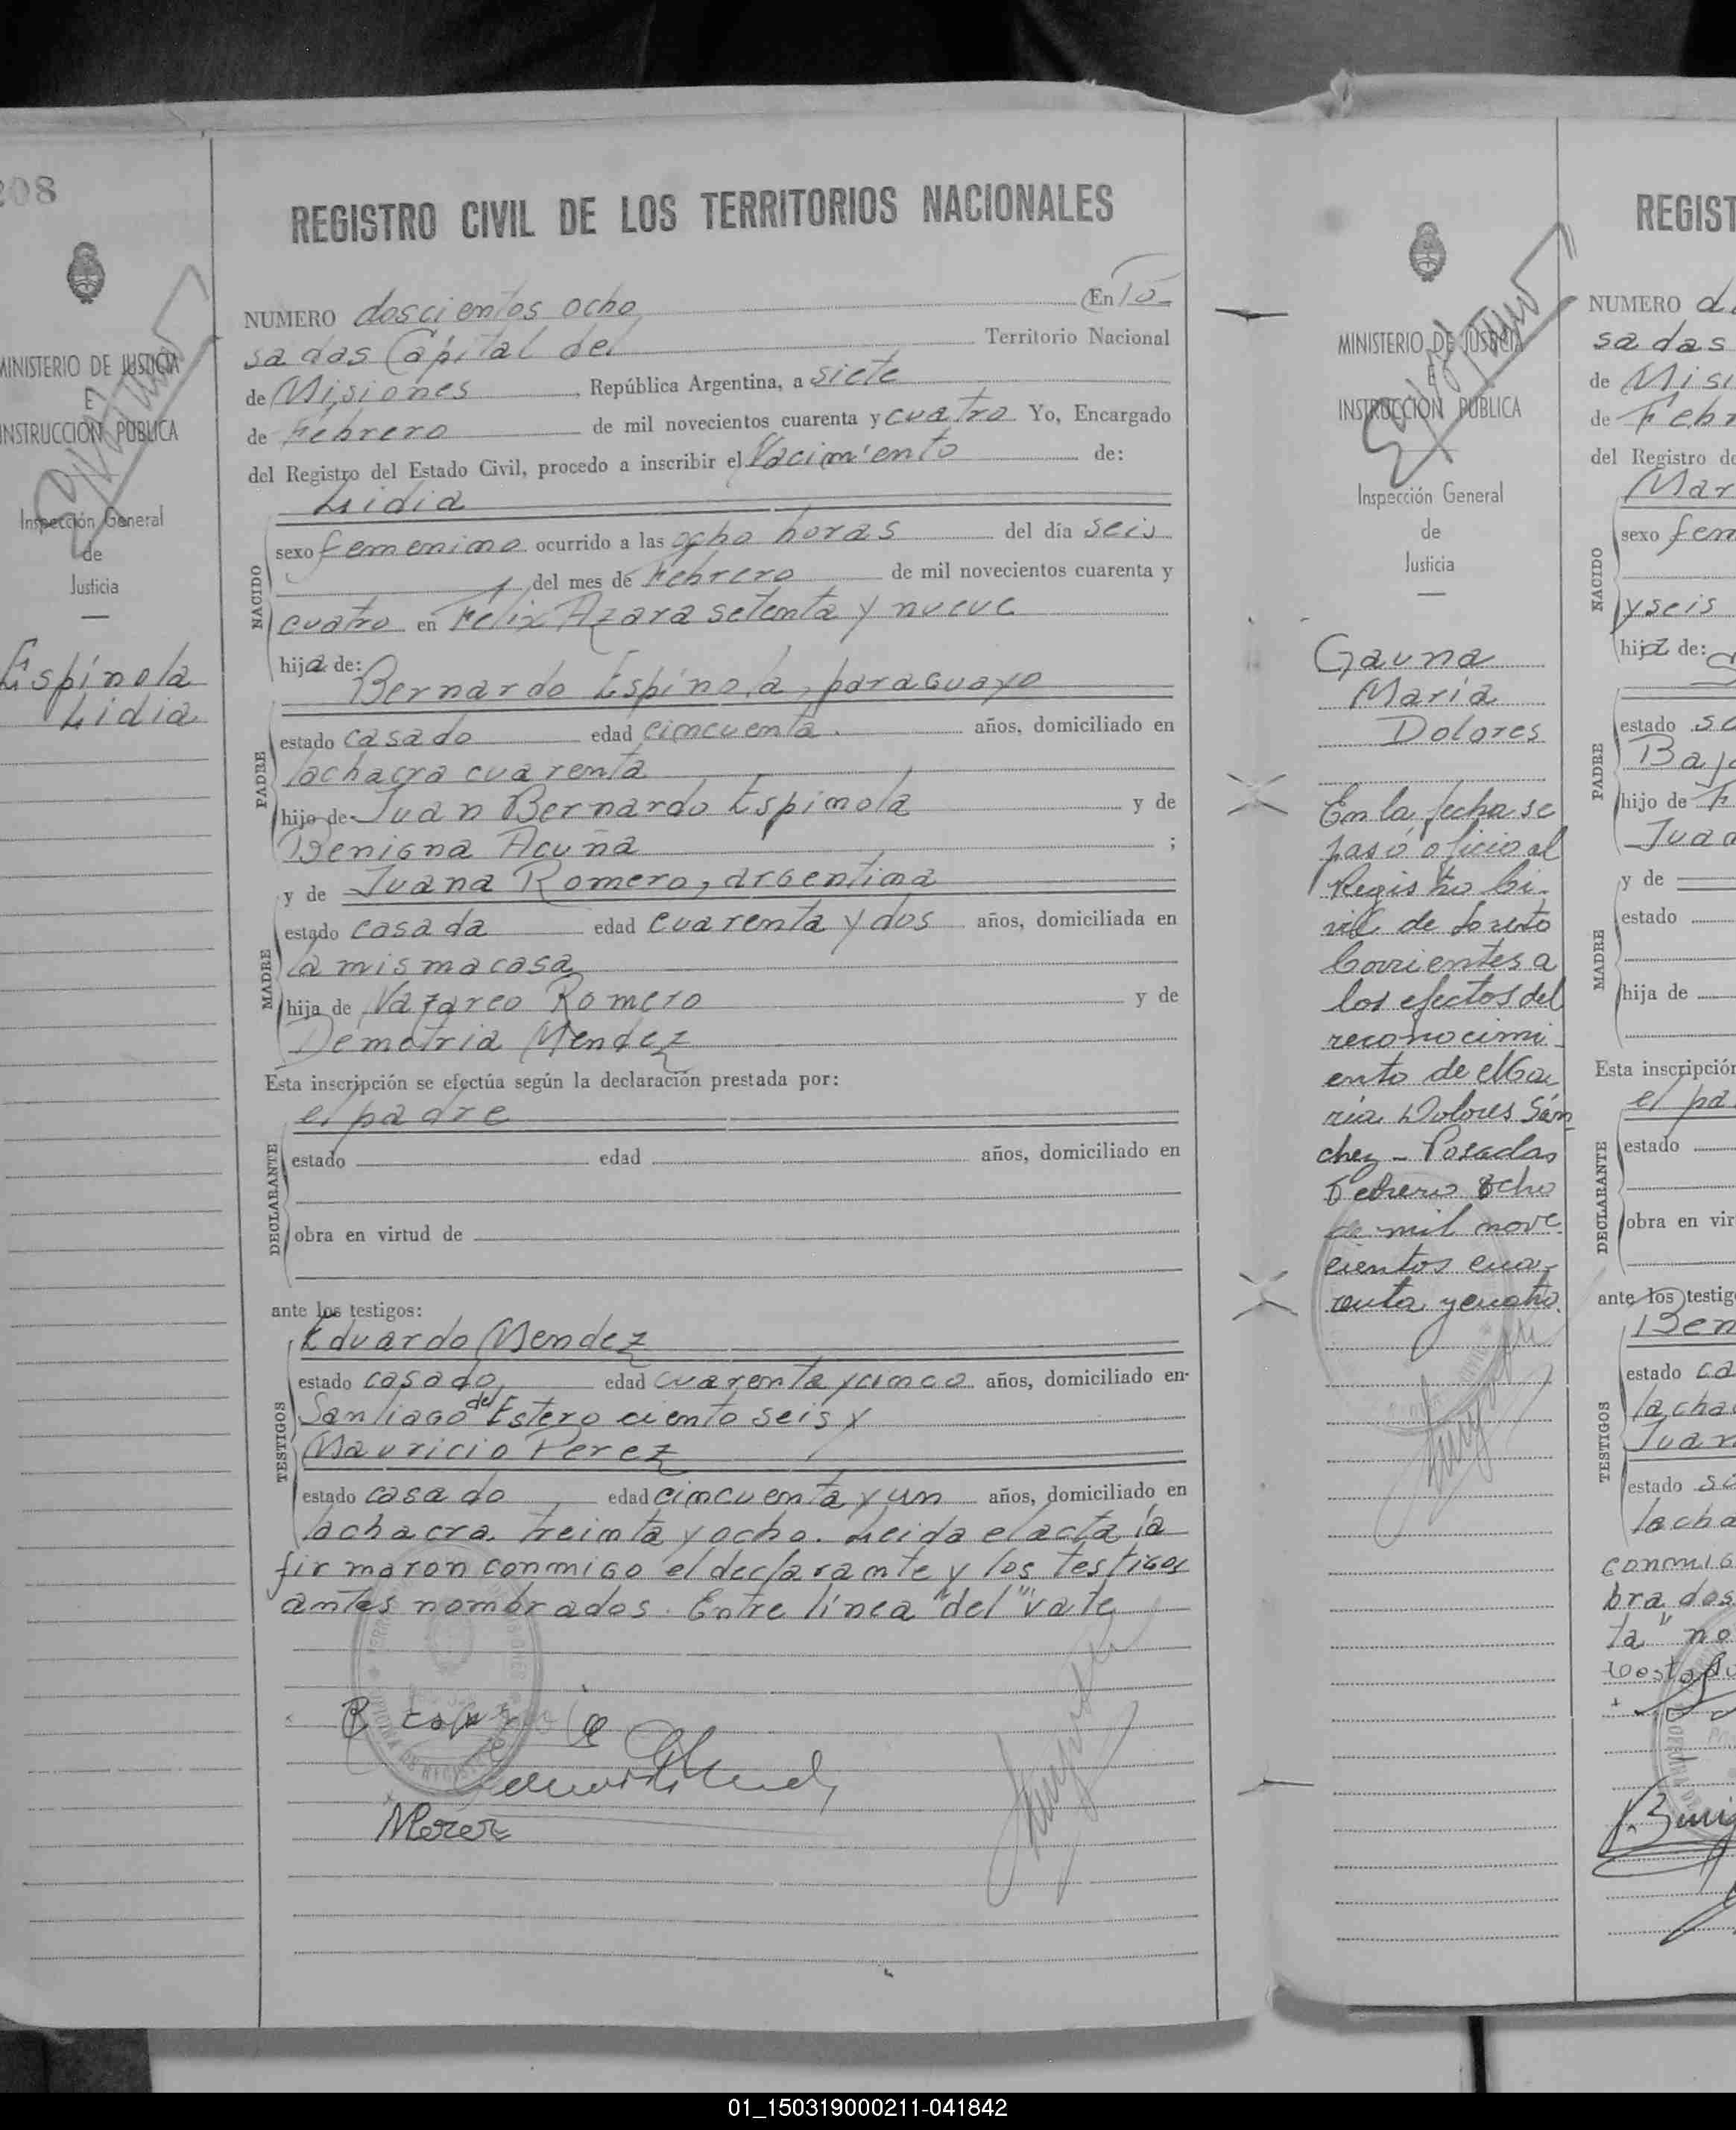 208
MINISTERIO DE JUSTICIA
E
INSTRUCCION PUBLICA
Inspección General
de
Justicia
Espínola
Lidia
REGISTRO CIVIL DE LOS TERRITORIOS NACIONALES
NUMERO doscientos ocho (En Po
sadas Capital del Territorio Nacional
de Misiones, República Argentina, a siete
de Febrero de mil novecientos cuarenta y cuatro Yo, Encargado
del Registro del Estado Civil, procedo a inscribir el Nacimiento de:
Lidia
NACIDO
sexo femenino ocurrido a las ocho horas del día seis
del mes de Febrero de mil novecientos cuarenta y
cuatro en Felix Azara setenta y nueve
hija de:
Bernardo Espínola, paraguayo
PADRE
estado casado edad cincuenta. años, domiciliado en
la chacra cuarenta
hijo de Juan Bernardo Espinola y de
Benigna Acuña ;
y de Juana Romero, argentina
MADRE
estado casada edad cuarenta y dos años, domiciliada en
la misma casa
hija de Nazareo Romero y de
Demetria Mendez
Esta inscripción se efectúa según la declaración prestada por:
el padre
DECLARANTE
estado edad años, domiciliado en
obra en virtud de
ante los testigos:
Eduardo Mendez
TESTIGOS
estado casado edad cuarenta y cinco años, domiciliado en
Santiago del Estero ciento seis y
Mauricio Perez
estado casado edad cincuenta y un años, domiciliado en
la chacra treinta y ocho. Leida el acta la
firmaron conmigo el declarante y los testigos
antes nombrados. Entre línea "del" vale
MPerez
MINISTERIO DE JUSTICIA
E
INSTRUCCION PUBLICA
Inspección General
de
Justicia
Gauna
María
Dolores
En la fecha se
pasó oficio al
Registro Ci-
vil de Loreto
Corrientes a
los efectos del
reconocimi-
ento de Ma
ria Dolores Sán
chez - Posadas
Febrero ocho
de mil nove
cientos cua-
renta y cuatro.
REGIST
NUMERO d
sadas
de Misi
de Febr
del Registro de
Mar
NACIDO
sexo fem
y seis
hija de:
PADRE
estado so
Baj
hijo de F
Jua
y de
MADRE
estado
hija de
Esta inscripción
el pa
DECLARANTE
estado
obra en vir
ante los testig
Ben
TESTIGOS
estado ca
la chac
Juan
estado so
la cha
conmig
brados
ta" no
01_150319000211-041842